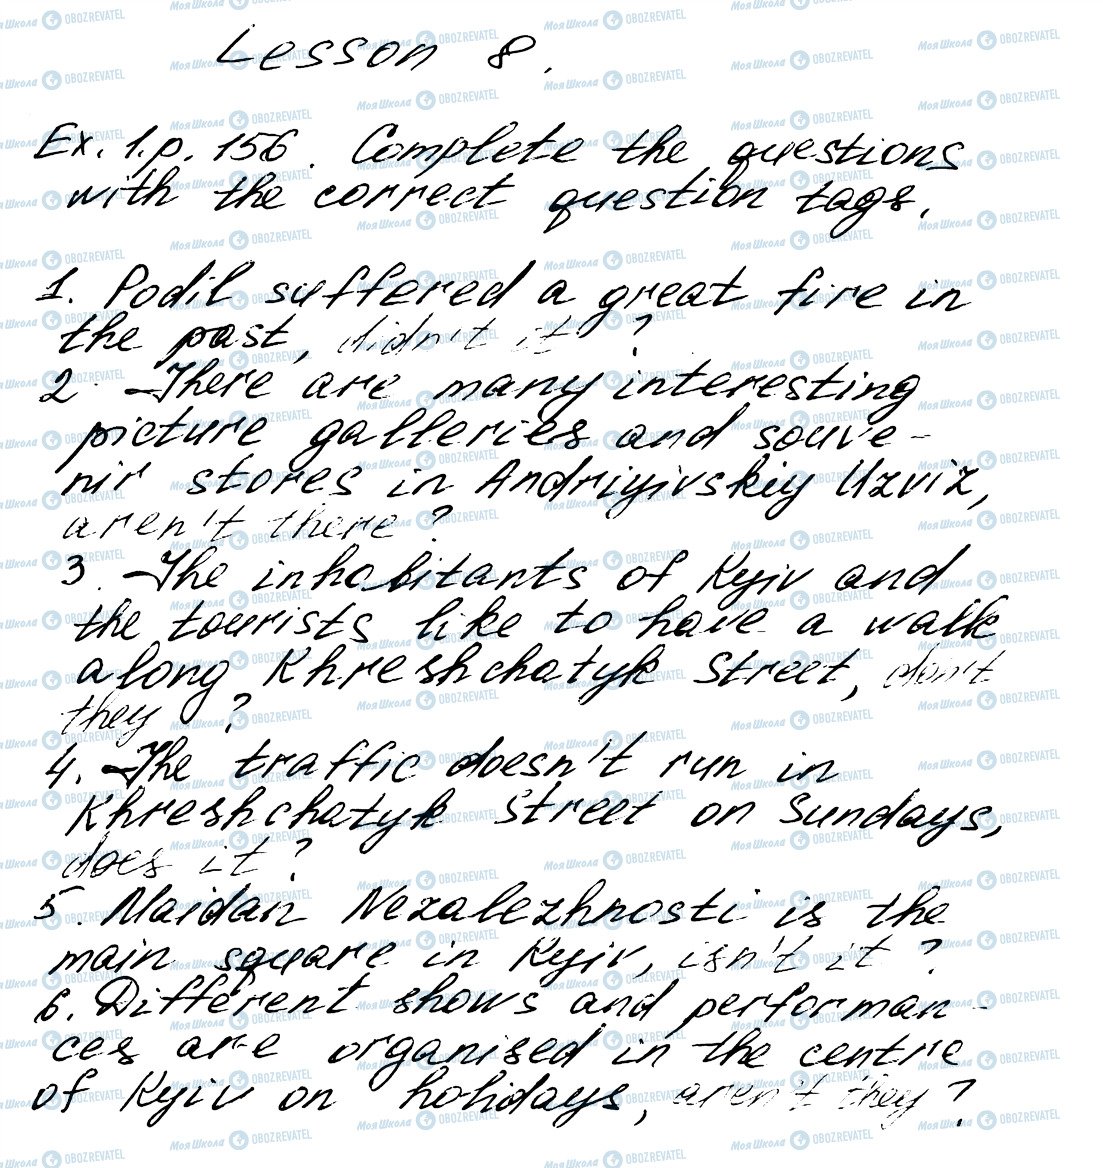 Lesson 8.
Ex. 1. p. 156. Complete the questions
with the correct question tags.
1. Podil suffered a great fire in
the past, didn't it ?
2. There are many interesting
picture galleries and souve-
nir stores in Andriyivskiy Uzviz,
aren't there ?
3. The inhabitants of Kyiv and
the tourists like to have a walk
along Khreshchatyk Street, don't
they ?
4. The traffic doesn't run in
Khreshchatyk Street on Sundays,
does it ?
5. Maidan Nezalezhnosti is the
main square in Kyiv, isn't it ?
6. Different shows and performan-
ces are organised in the centre
of Kyiv on holidays, aren't they ?
МояШкола OBOZREVATEL